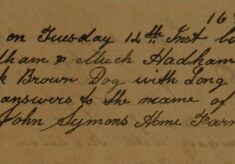 16
on Tuesday 12th Inst b
ham & Much Hadham
k Brown Dog with Long
answers to the name of
John Symons Home Farm